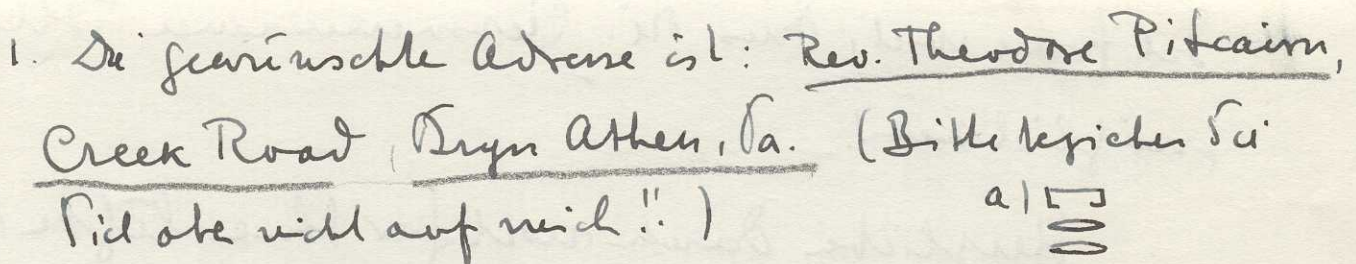 1. Die gewünschte Adresse ist: Rev. Theodore Pitcairn,
Creek Road, Bryn Athen, Pa. (Bitte beziehen Sie
Sich aber nicht auf mich!!)
a)